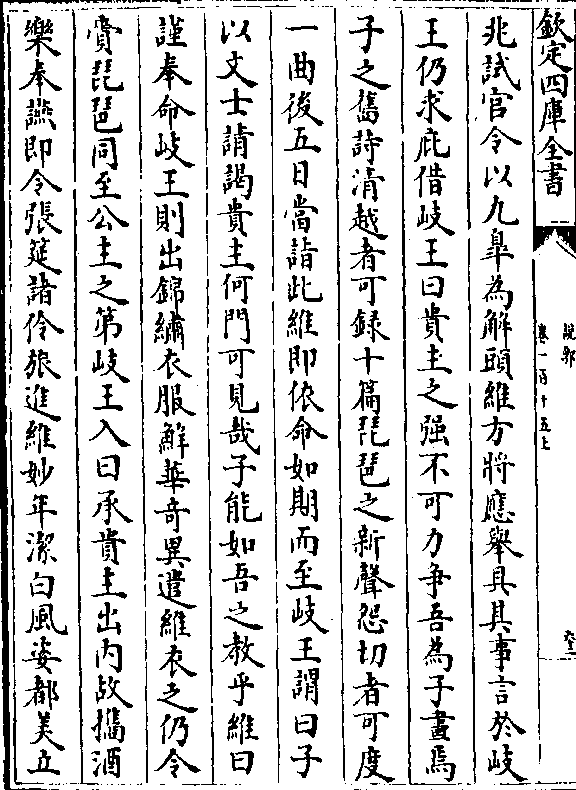 欽定四庫全書
說郛
卷一百十五上
兆試官令以九臯為解頭維方將應舉具其事言於岐
王仍求庇借岐王曰貴主之强不可力争吾為子畫焉
子之舊詩清越者可録十篇琵琶之新聲怨切者可度
一曲後五日當詣此維即依命如期而至岐王謂曰子
以文士請謁貴主何門可見哉子能如吾之教乎維曰
謹奉命岐王則出錦繡衣服鮮華奇異遣維衣之仍令
賫琵琶同至公主之第岐王入曰承貴主出内故攜酒
樂奉讌即令張筵諸伶旅進維妙年潔白風姿都美立